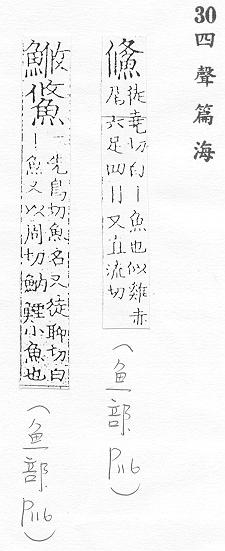 30 四聲篇海
鯈 徒堯切白丨魚也似雞赤
尾六足四目又直流切
(鱼部 P116)
䱔 先鳥切魚名又徒聊切白
丨魚又以周切 鯉小魚也
(鱼部 P116)